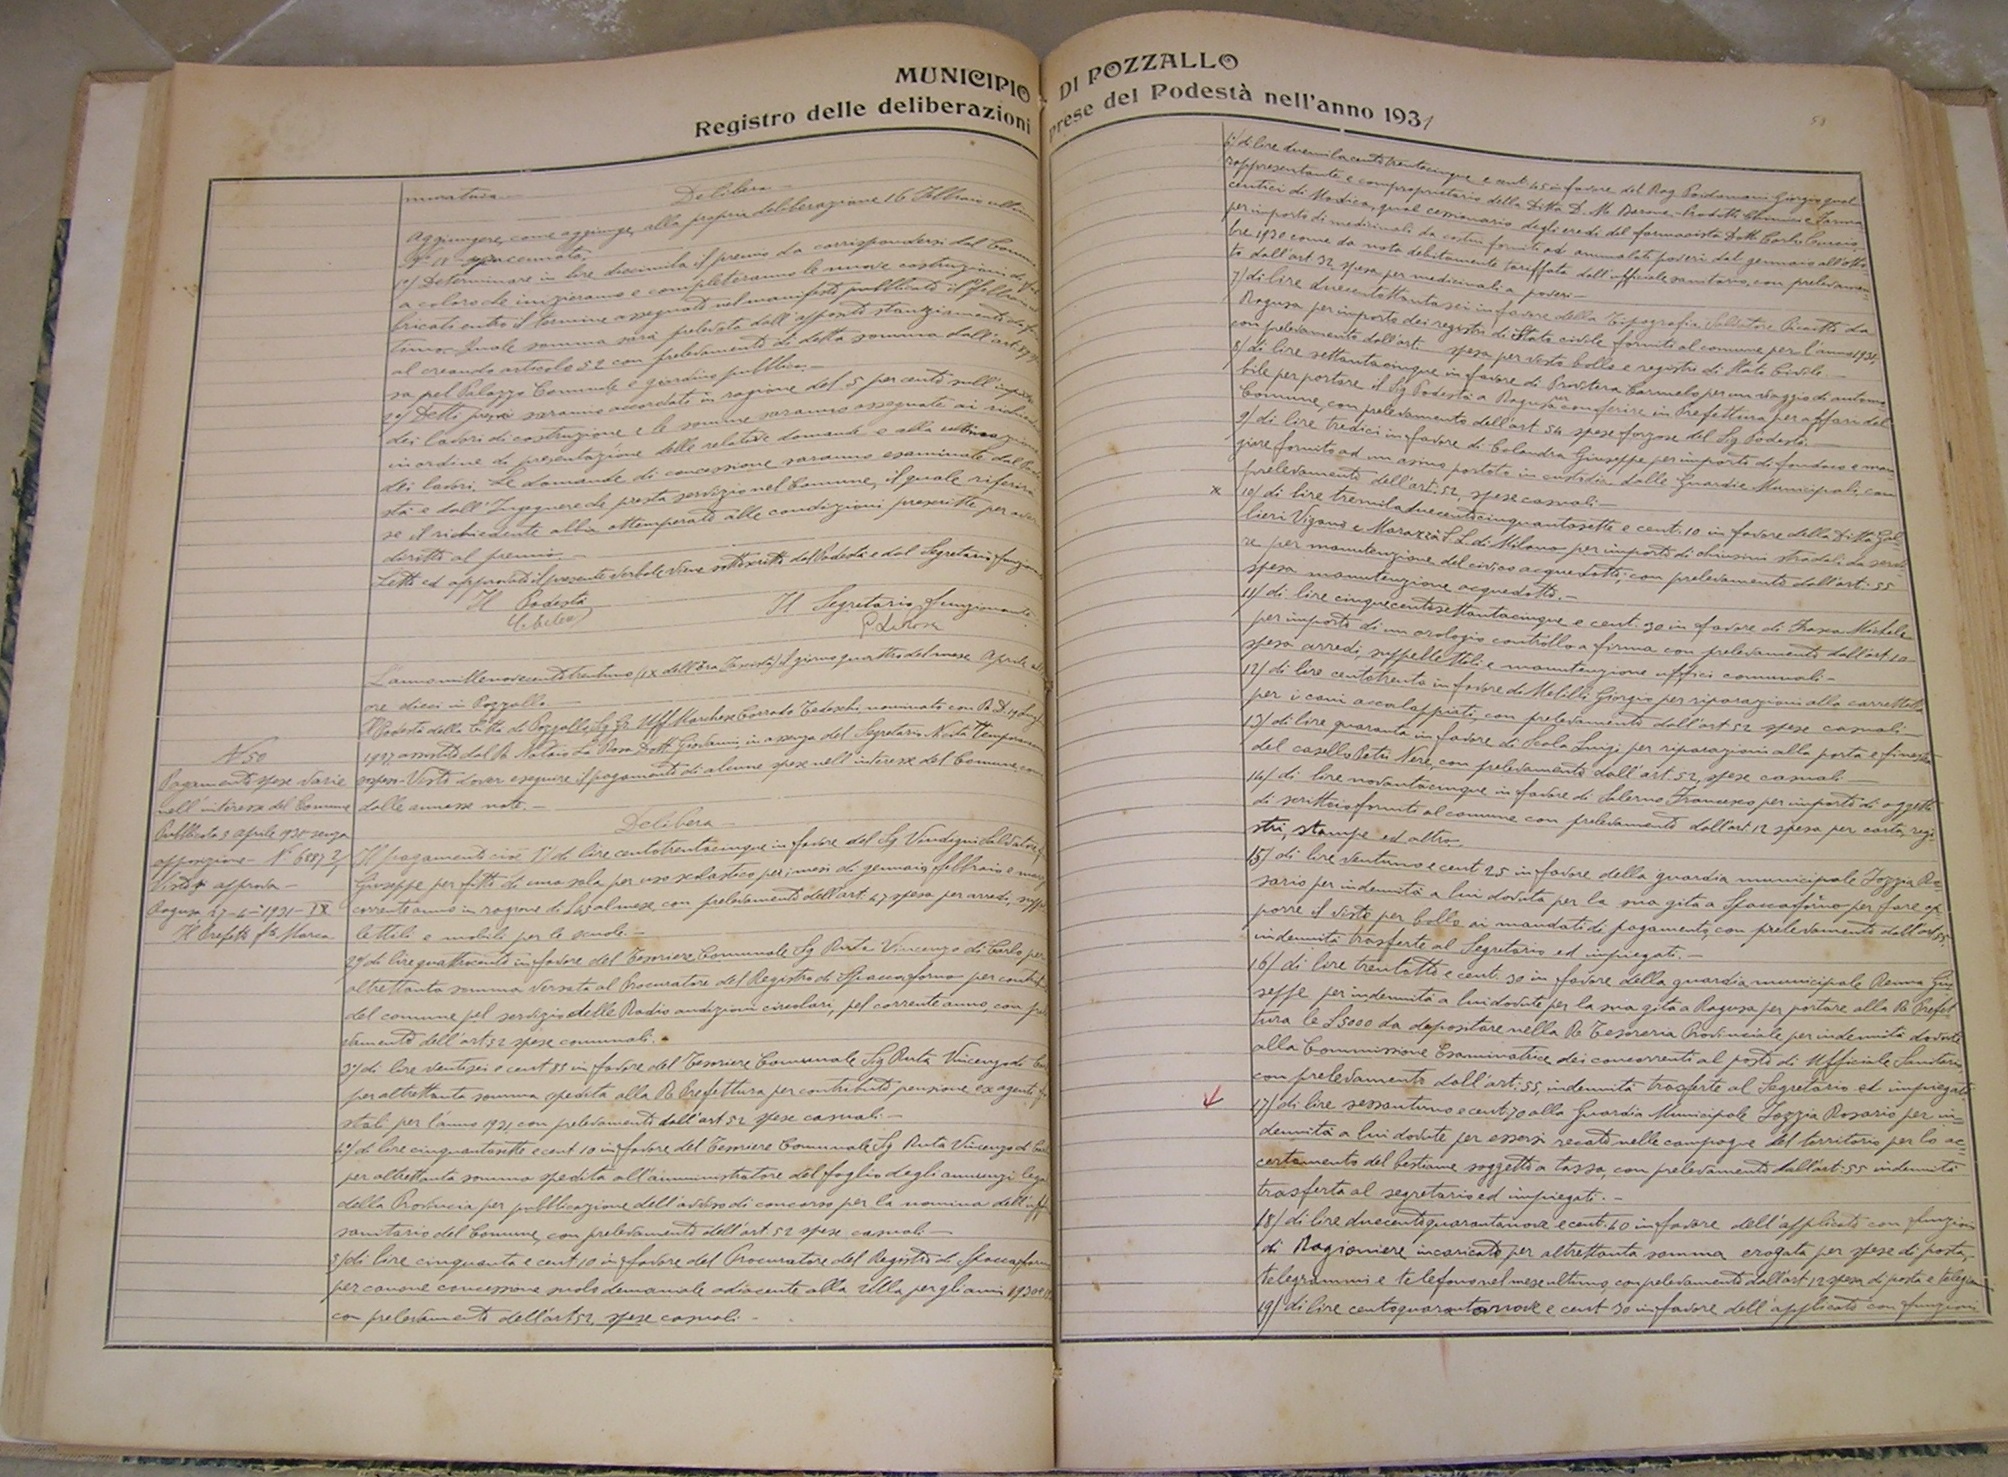 MUNICIPIO DI POZZALLO
Registro delle deliberazioni prese del Podestà nell'anno 1931
Delibera
Aggiungere, come aggiunge, alla propria deliberazione 16 Febbraio ultimo
1°/ Determinare in lire diecimila il premio da corrispondersi dal Comune
a coloro che inizieranno e completeranno le nuove costruzioni di
bricati entro il termine assegnato nel manifesto pubblicato il febbraio
timo. Quale somma sarà prelevata dall'apposito stanziamento da
al creando articolo 52 con prelevamento di detta somma dall'art.
sa pel Palazzo Comunale e giardino pubblico.-
2°/ Detti premi saranno accordati in ragione del 5 per cento sull'importo
dei lavori di costruzione e le somme saranno assegnate ai richiedenti
in ordine di presentazione delle relative domande e alla
dei lavori. Le domande di concessione saranno esaminate dal
stà e dall'Ingegnere che presta servizio nel Comune, il quale riferirà
se il richiedente abbia ottemperato alle condizioni prescritte per
diritto al premio.-
Letto ed approvato il presente verbale viene sottoscritto dal Podestà e dal Segretario funzion
Il Podestà Il Segretario funzionante
G La Rosa
L'anno millenovecentotrentuno (IX dell'Era Fascista) il giorno quattro del mese Aprile
ore dieci in Pozzallo
Il Podestà della Città di Pozzallo, Sig. Gr. Uff. Marchese Corrado Tedeschi, nominato con R. D.
assistito dal R. Notaio La Rosa Dott. Giovanni in assenza del Segretario
sospeso - Visto dover eseguire il pagamento di alcune spese nell'interesse del Comune, come
dalle annesse note.-
N 50
Pagamento spese varie
nell'interesse del Comune
Pubblicata aprile senza
opposizione - N°
Visto approva -
Ragusa, 27-4-1931-IX
Il Prefetto
Delibera
Il pagamento cioè 1°/ di lire centotrentacinque in favore del Sig Vindigni Salvatore
Giuseppe per fitto di una sala per uso scolastico per i mesi di gennaio, febbraio e marzo
corrente anno in ragione di L. 45 al mese, con prelevamento dall'art. 47 spesa per arredi, suppel
lettili e mobili per le scuole.-
2°/ di lire quattrocento in favore del Tesoriere Comunale Sig. Ruta Vincenzo di Carlo per
altrettanta somma versata al Procuratore del Registro di Spaccaforno per contrib
del comune pel servizio delle Radio audizioni circolari, pel corrente anno, con pre
levamento dell'art 52 spese comunali.
3°/ di lire ventisei e cent 85 in favore del Tesoriere Comunale Sig. Ruta Vincenzo di
per altrettanta somma spedita alla R. Prefettura per contributo pensione ex agenti
stali per l'anno 1931 con prelevamento dall'art 52 spese casuali.-
4°/ di lire cinquantasette e cent 10 in favore del Tesoriere Comunale Sig Ruta Vincenzo di
per altrettanta somma spedita all'amministratore del foglio degli annunzi legali
della Provincia per pubblicazione dell'avviso di concorso per la nomina dell'uff
sanitario del Comune, con prelevamento dell'art. 52 spese casuali.-
5/ di lire cinquanta e cent 10 in favore del Procuratore del Registro di Spaccaforno
per canone concessione suolo demaniale adiacente alla Villa per gli anni 1930 e
con prelevamento dell'art 52 spese casuali.-
6°/ di lire duemilacentotrentacinque e cent. 45 in favore del Rag. Giorgio qual
rappresentante e comproprietario della Ditta D. M. Barone - Prodotti Chimici e Farma
ceutici di Modica, qual cessionario degli eredi del farmacista Dott. Carlo
per importo di medicinali da costui forniti ad ammalati poveri dal gennaio all'otto
bre 1930 come da nota debitamente tariffata dall'ufficiale sanitario, con prelevamen
to dall'art 32 spesa per medicinali a poveri.-
7/ di lire duecentottantasei in favore della Tipografia Salvatore Piccitto da
Ragusa per importo dei registri di Stato civile forniti al comune per l'anno 1931,
con prelevamento dall'art. spesa per visto bollo e registri di Stato Civile.-
8/ di lire settantacinque in favore di Carmelo per un viaggio di automo
bile per portare il Sig. Podestà a Ragusa per conferire in Prefettura per affari del
Comune, con prelevamento dell'art 54 spese forzose del Sig Podestà.-
9/ di lire tredici in favore di Colandra Giuseppe per importo di fondaco e man
giare fornito ad un asino portato in custodia dalle Guardie Municipali, con
prelevamento dell'art. 52, spese casuali.-
x 10/ di lire tremiladuecentocinquantasette e cent. 10 in favore della Ditta Gal
lieri Viganò e Marazza S. L. di Milano per importo di chiusini stradali da servi
re per manutenzione del civico acquedotto; con prelevamento dall'art. 55
spesa manutenzione acquedotto.-
11/ di lire cinquecentosettantacinque e cent. 30 in favore di Michele
per importo di un orologio controllo a firma con prelevamento dall'art 10
spesa arredi, suppellettili e manutenzione uffici comunali.-
12/ di lire centotrenta in favore di Melilli Giorgio per riparazioni alla carretta
per i cani accalappiati, con prelevamento dall'art 52 spese casuali.-
13/ di lire quaranta in favore di Scala Luigi per riparazioni alla porta e finestra
del casello Petri Nere, con prelevamento dall'art. 52, spese casuali.-
14/ di lire novantacinque in favore di Salerno Francesco per importo di oggetti
di scrittoio forniti al comune con prelevamento dall'art. 12 spesa per carta, regi
stri, stampe ed altro.
15/ di lire ventuno e cent 25 in favore della guardia municipale Iozzia Ro
sario per indennità a lui dovuta per la sua gita a Spaccaforno per fare ap
porre il visto per bollo ai mandati di pagamento, con prelevamento dall'art 55
indennità trasferte al Segretario ed impiegati.-
16/ di lire trentotto e cent. 30 in favore della guardia municipale Renna Giu
seppe per indennità a lui dovute per la sua gita a Ragusa per portare alla R. Prefet
tura le L 5000 da depositare nella R. Tesoreria Provinciale per indennità dovute
alla Commissione Esaminatrice dei concorrenti al posto di Ufficiale Sanitario
con prelevamento dall'art. 55, indennità trasferte al Segretario ed impiegati
17/ di lire sessantuno e cent. 70 alla Guardia Municipale Iozzia Rosario per in
dennità a lui dovute per essersi recato nelle campagne del territorio per lo ac
certamento del bestiame soggetto a tassa, con prelevamento dall'art. 55 indennità
trasferta al segretario ed impiegati.-
18/ di lire duecentoquarantanove e cent. 40 in favore dell'applicato con funzioni
di Ragioniere incaricato per altrettanta somma erogata per spese di posta,
telegrammi e telefono nel mese ultimo, con prelevamento dall'art 12 spesa di posta e telegra
19/ di lire centoquarantanove e cent 30 in favore dell'applicato con funzioni